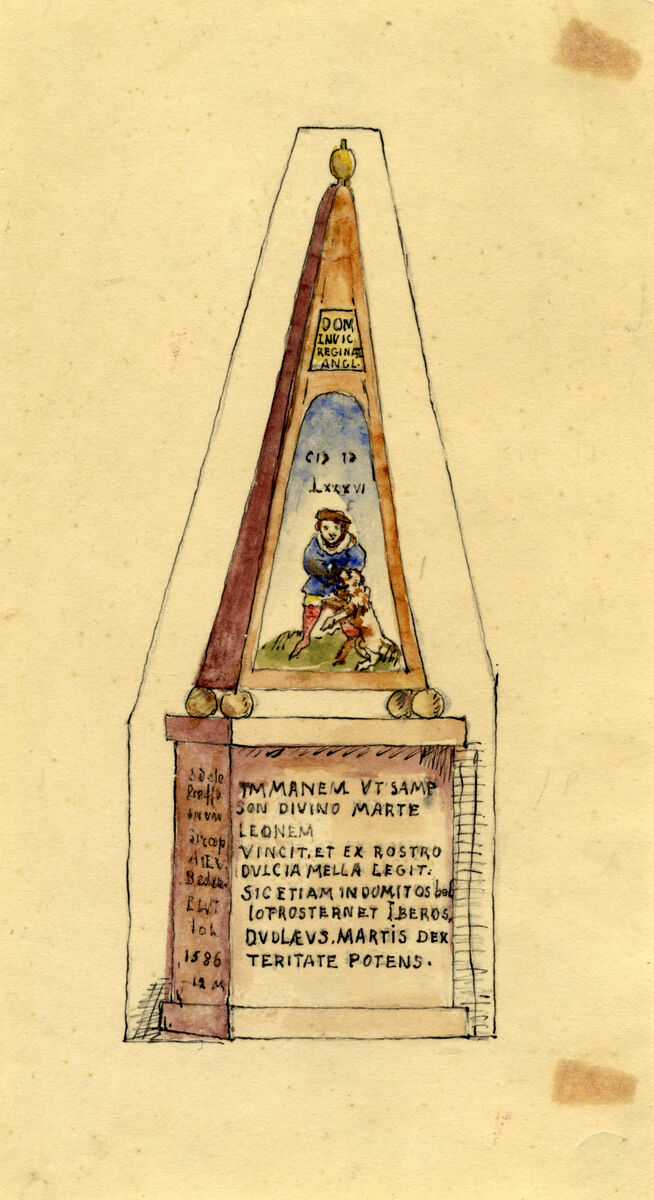 DOM
INVIC
REGINÆ
ANGL.
CIƆ IƆ
LXXXVI
IMMANEM VT SAMP
SON DIVINO MARTE
LEONEM
VINCIT, ET EX ROSTRO
DVLCIA MELLA LEGIT:
SIC ETIAM INDOMITOS bel
lo PROSTERNET IBEROS,
DVDLÆVS, MARTIS DEX
TERITATE POTENS.
1586
12 M